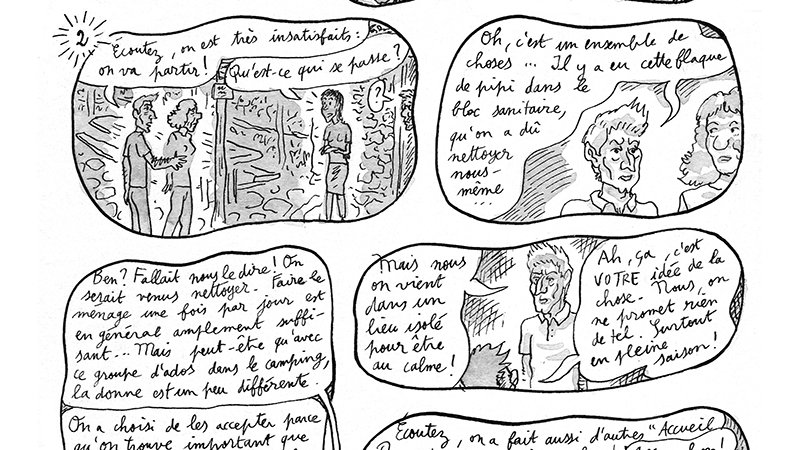 2
Écoutez, on est très insatisfaits :
on va partir !
Qu'est-ce qui se passe ?
?
Oh, c'est un ensemble de
choses ... Il y a eu cette flaque
de pipi dans le
bloc sanitaire,
qu'on a dû
nettoyer
nous-
même
...
Ben ? Fallait nous le dire ! On
serait venus nettoyer. Faire le
ménage une fois par jour est
en général amplement suffi-
sant ... Mais peut-être qu'avec
ce groupe d'ados dans le camping,
la donne est un peu différente.
Mais nous
on vient
dans un
lieu isolé
pour être
au calme !
Ah, ça, c'est
VOTRE idée de la
chose. Nous, on
ne promet rien
de tel. Surtout
en pleine
saison !
On a choisi de les accepter parce
qu'on trouve important que
Écoutez, on a fait aussi d'autres "Accueil